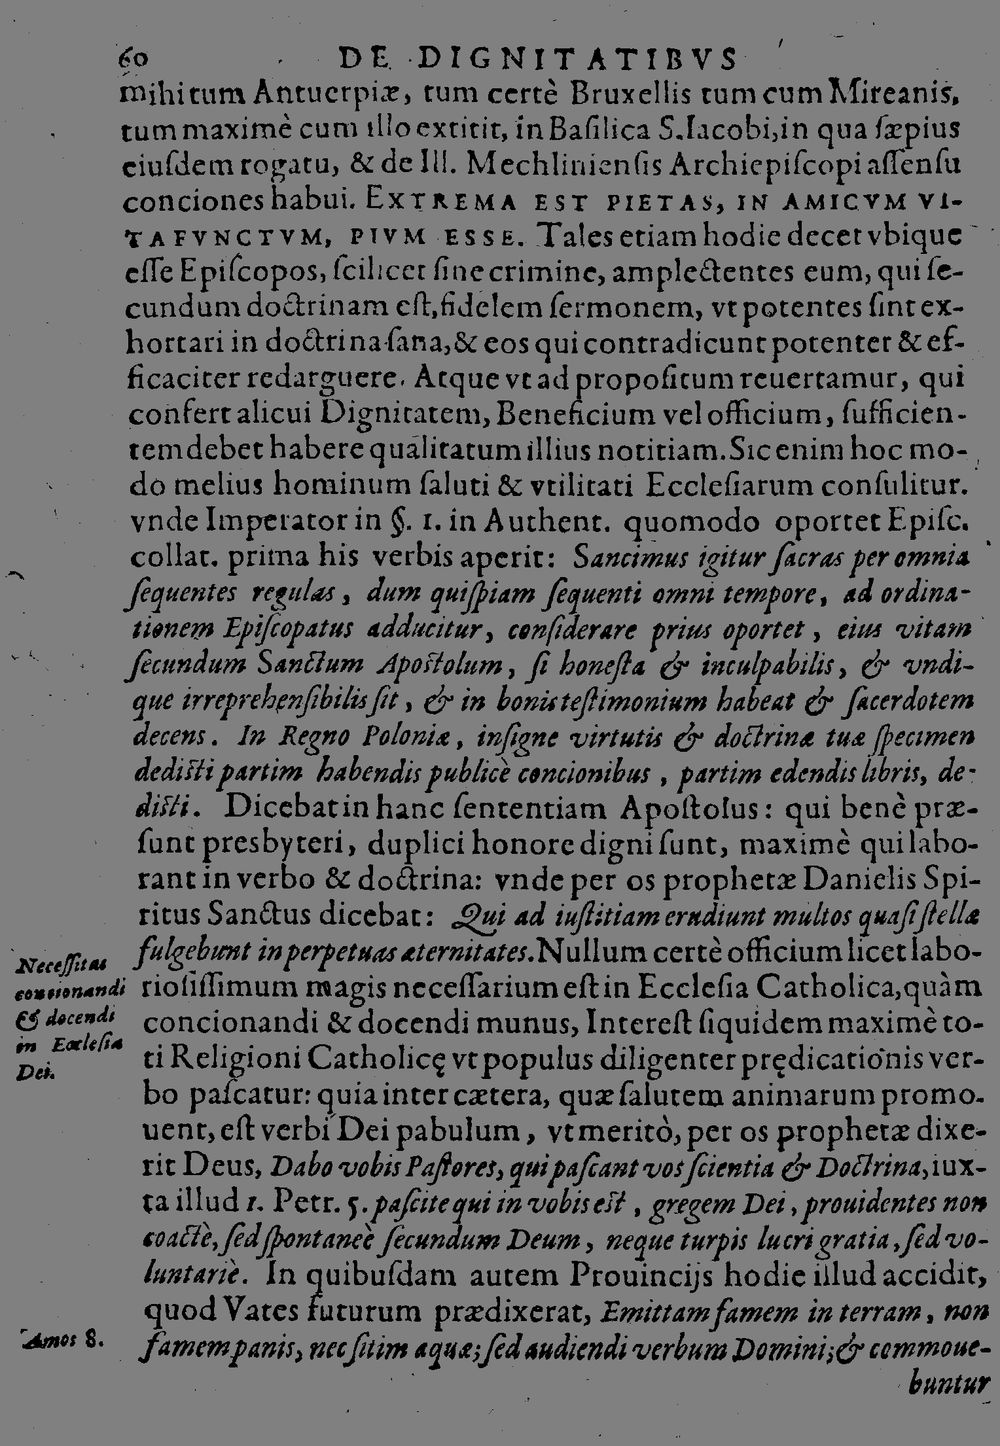 60 DE DIGNITATIBVS
mihi tum Antuerpiæ, tum certè Bruxellis tum cum Mireanis,
tum maximè cum illo extitit, in Basilica S. Iacobi, in qua sæpius
eiusdem rogatu, & de Ill. Mechliniensis Archiepiscopi assensu
conciones habui. EXTREMA EST PIETAS, IN AMICVM VI-
TA FVNCTVM, PIVM ESSE. Tales etiam hodie decet vbique
esse Episcopos, scilicet sine crimine, amplectentes eum, qui se-
cundum doctrinam est, fidelem sermonem, vt potentes sint ex-
hortari in doctrina sana, & eos qui contradicunt potenter & ef-
ficaciter redarguere. Atque vt ad propositum reuertamur, qui
confert alicui Dignitatem, Beneficium vel officium, sufficien-
tem debet habere qualitatum illius notitiam. Sic enim hoc mo-
do melius hominum saluti & vtilitati Ecclesiarum consulitur.
vnde Imperator in §. 1. in Authent. quomodo oportet Episc.
collat. prima his verbis aperit: Sancimus igitur sacras per omnia
sequentes regulas, dum quispiam sequenti omni tempore, ad ordina-
tionem Episcopatus adducitur, considerare prius oportet, eius vitam
secundum Sanctum Apostolum, si honesta & inculpabilis, & vndi-
que irreprehensibilis sit, & in bonis testimonium habeat & sacerdotem
decens. In Regno Poloniæ, insigne virtutis & doctrinæ tuæ specimen
dedisti partim habendis publicè concionibus, partim edendis libris, de-
disti. Dicebat in hanc sententiam Apostolus: qui benè præ-
sunt presbyteri, duplici honore digni sunt, maximè qui labo-
rant in verbo & doctrina: vnde per os prophetæ Danielis Spi-
ritus Sanctus dicebat: Qui ad iustitiam erudiunt multos quasi stellæ
fulgebunt in perpetuas æternitates. Nullum certè officium licet labo-
Necessitas
concionandi
& docendi
in Ecclesia
Dei.
riosissimum magis necessarium est in Ecclesia Catholica, quàm
concionandi & docendi munus, Interest siquidem maximè to-
ti Religioni Catholicę vt populus diligenter prędicationis ver-
bo pascatur: quia inter cætera, quæ salutem animarum promo-
uent, est verbi Dei pabulum, vt meritò, per os prophetæ dixe-
rit Deus, Dabo vobis Pastores, qui pascant vos scientia & Doctrina, iux-
ta illud 1. Petr. 5. pascite qui in vobis est, gregem Dei, prouidentes non
coactè, sed spontaneè secundum Deum, neque turpis lucri gratia, sed vo-
luntariè. In quibusdam autem Prouincijs hodie illud accidit,
quod Vates futurum prædixerat, Emittam famem in terram, non
Amos 8.
famem panis, nec sitim aquæ; sed audiendi verbum Domini; & commoue-
buntur